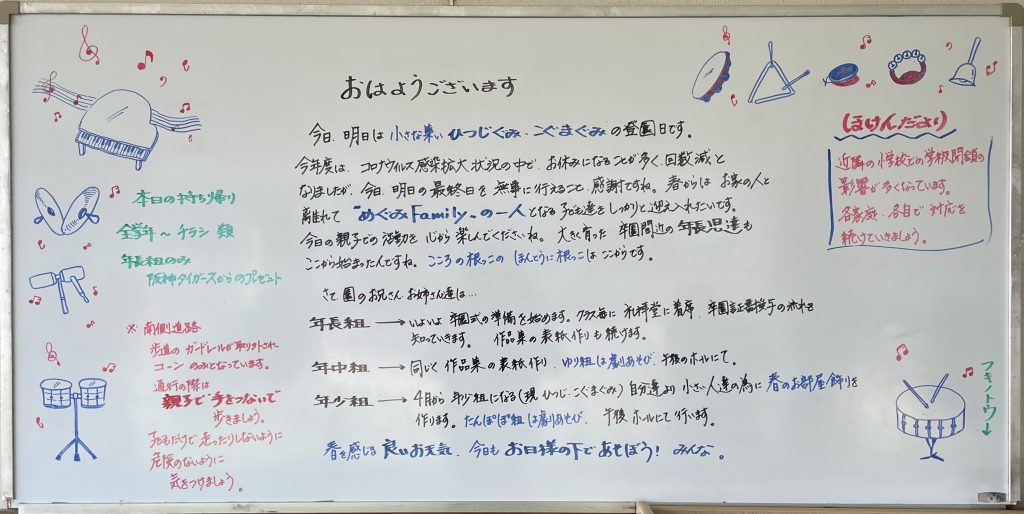 おはようございます
今日、明日は 小さな集い ひつじぐみ・こぐまぐみの登園日です。
今年度は、コロナウィルス感染拡大状況の中で、お休みになることが多く、回数減と
なりましたが、今日、明日の最終日を無事に行えること、感謝ですね。春からは お家の人と
離れて "めぐみFamily〜の一人となる子ども達をしっかりと迎え入れたいです。
今日の親子での活動を心から楽しんでくださいね。大きく育った 卒園間近の年長児達も
ここから始まったんですね。こころの根っこの ほんとうに根っこは ここからです。
さて、園のお兄さん、お姉さん達は…
年長組 → いよいよ 卒園式の準備を始めます。クラス毎に 礼拝堂に着席、卒園証書授与の流れを
知っていきます。 作品集の表紙作りも続けます。
年中組 → 同じく 作品集の表紙作り、ゆり組は劇あそび 午後のホールにて。
年少組 → 4月から 年少組になる(現 ひつじ・こぐまぐみ) 自分達より 小さい人達の為に 春のお部屋飾りを
作ります。たんぽぽ組は劇あそび、 午後 ホールにて行います。
春を感じる 良いお天気、今日も お日様の下であそぼう! みんな。
本日の持ち帰り
全学年〜チラシ類
年長組のみ
阪神タイガースからのプレゼント
※ 南側道路
歩道の ガードレールが取り外され
コーン のみとなっています。
通行の際は
親子で手をつないで
歩きましょう。
子どもだけで走ったりしないように
危険のないように
気をつけましょう。
ほけんだより
近隣の小学校での学級閉鎖の
影響が多くなっています。
各家庭、各自で対応を
続けていきましょう。
フキノトウ↓